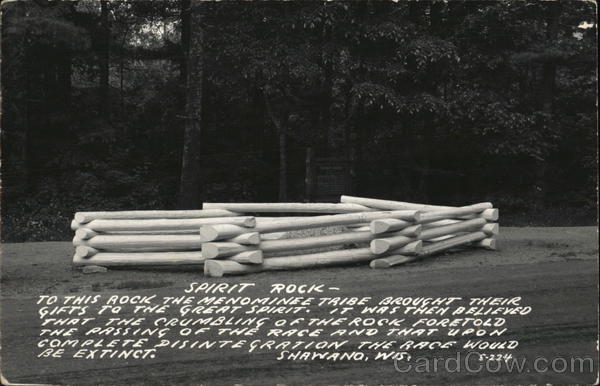 SPIRIT ROCK—
TO THIS ROCK THE MENOMINEE TRIBE BROUGHT THEIR
GIFTS TO THE GREAT SPIRIT. IT WAS THEN BELIEVED
THAT THE CRUMBLING OF THE ROCK FORETOLD
THE PASSING OF THE RACE AND THAT UPON
COMPLETE DISINTEGRATION THE RACE WOULD
BE EXTINCT. SHAWANO, WIS. S-224
CardCow.com